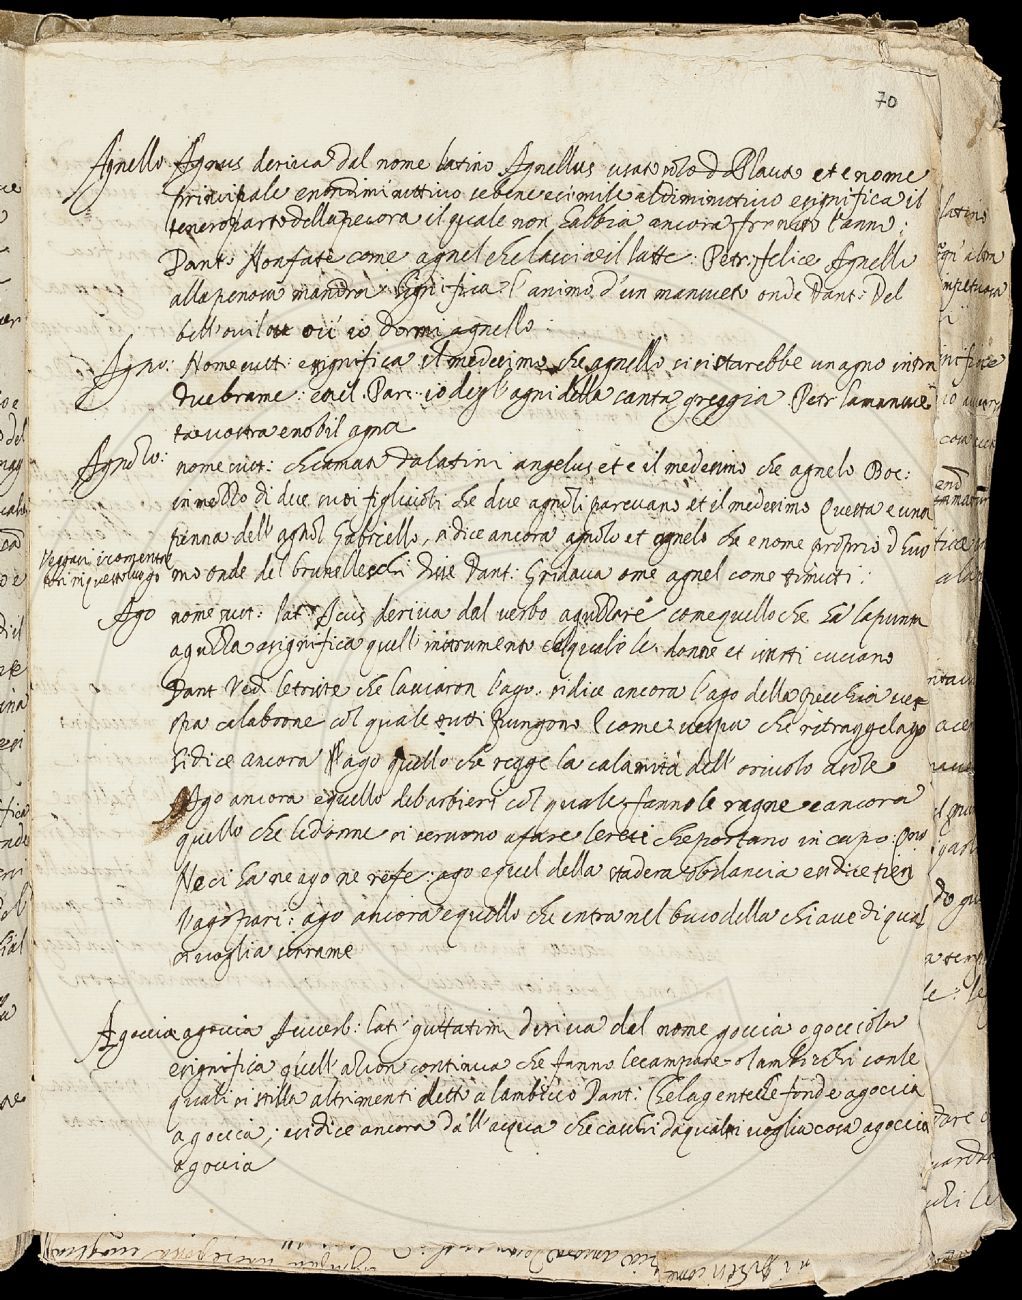 70
Agnello. Agnus deriua dal nome latino Agnellus usato solo d Plauto et e nome
principale e non diminuttiuo se bene e simile al diminutiuo e significa il
tenero parto della pecora il quale non habbia ancora fornito l'anno:
Dant: Non fate come agnel che lascia il latte: Petr: felice Agnello
alla penosa mandra significa l'animo d'un mansueto onde Dant: Del
bell'ouil oue io dormi agnello:
Agno: Nome sust: e significa il medesimo che agnello si si starebbe un agno intra
due brame: e nel Par: io degl'agni della santa greggia Petr: la mansue
ta uostra e nobil agna
Agnolo: nome sust: chiamato da latini angelus et e il medesimo che agnelo Boc:
in mezzo di due suoi figliuoli che due agnoli pareuano et il medesimo Questa e una
penna dell'agnol Gabriello, si dice ancora agnolo et agnelo che e nome proprio d huo
mo onde del brunelleschi disse Dant: Gridaua ome agnel come ti muti:
Ago nome sust: lat: Acus deriua dal uerbo aguzzare come quello che ha la punta
aguzza e significa quell'instrumento col quale le donne et i sarti cuciano
Dant Ved le triste che lasciaron l'ago: si dice ancora l'ago della pecchia ues
pa calabrone col quale tutti pungono E come uespa che ritragge l'ago
Si dice ancora ago quello che regge la calamita dell'oriuolo a sole
Ago ancora e quello de barbieri col quale fanno le ragne e ancora
quello che le donne si seruono a fare le reti che portano in capo:
Ne ci ha ne ago ne refe: ago e quel della stadera o bilancia e si dice tien
l'ago pari: ago ancora e quello che entra nel buco della chiaue di qual
si uoglia serrame
A goccia a goccia Auuerb: lat: guttatim deriua dal nome goccia o gocciola
e significa quell'azion continua che fanno le campane o lambicchi con le
quali si stilla altrimenti detto a lambicco Dant: Che la gente che fonde a goccia
a goccia; e si dice ancora dall'acqua che caschi da qual si uoglia cosa a goccia
a goccia